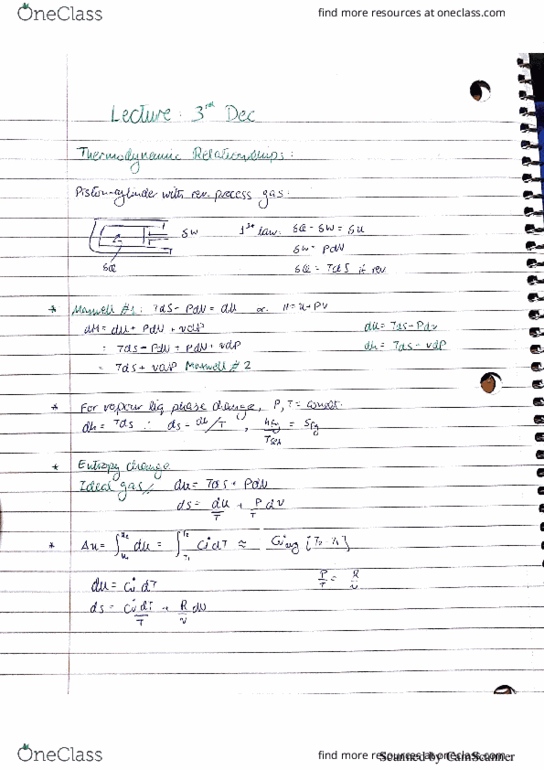 OneClass find more resources at oneclass.com
Lecture : 3rd Dec
Thermodynamic Relationships :
Piston-cylinder with rev. process gas.
δW 1st law. δQ - δW = δU
δW = PdV
δQ
δQ = TdS if rev.
* Maxwell #1 : TdS - PdV = dU or. H = U + PV
dH = dU + PdV + VdP du = Tds - Pdv
= TdS - PdV + PdV + VdP dh = Tds - vdP
= TdS + VdP Maxwell # 2
* For vapour liq phase change, P, T = const.
dh = Tds ∴ ds = dh/T , hfg/Tsat = Sfg
* Entropy change
Ideal gas // du = Tds + Pdv
ds = du/T + P/T dv
* Δu = ∫ du = ∫ Cv dT ≈ Cv avg [T2 - T1]
du = Cv dT P/T = R/v
ds = Cv dT/T + R/v dv
OneClass find more resources at oneclass.com
Scanned by CamScanner